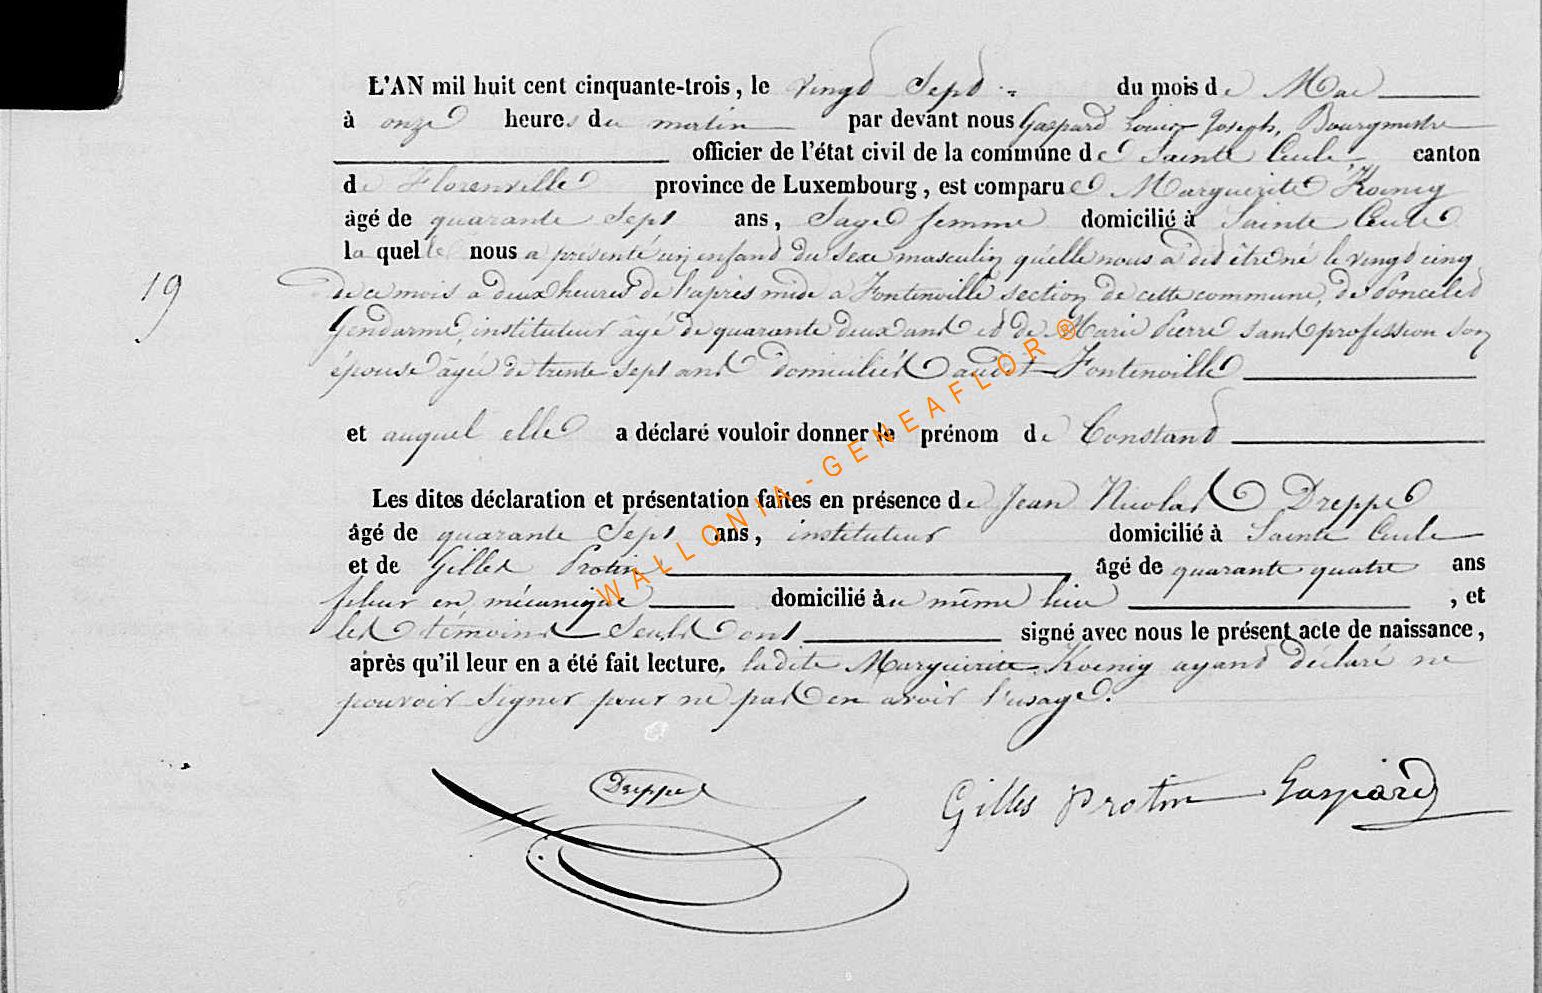 L'AN mil huit cent cinquante-trois, le vingt Sept du mois de Mai
à onze heures du matin par devant nous Gaspard Louis Joseph, Bourgmestre
officier de l'état civil de la commune de Sainte Cecile canton
de Florenville province de Luxembourg, est comparue Marguerite Koenig
âgé de quarante Sept ans, Sage femme domicilié à Sainte Cecile
la quelle nous a présenté un enfant du sexe masculin qu'elle nous a dit être né le vingt cinq
19
de ce mois a deux heures de l'après midi a Fontenoille section de cette commune, de Poncelet
Gendarme, instituteur âgé de quarante deux ans et de Marie Pierre sans profession son
épouse âgée de trente sept ans domiciliés audit Fontenoille
et auquel elle a déclaré vouloir donner le prénom de Constant
Les dites déclaration et présentation faites en présence de Jean Nicolas Dreppe
âgé de quarante Sept ans, instituteur domicilié à Sainte Cecile
et de Gilles Protin âgé de quarante quatre ans
fileur en mécanique domicilié au même lieu , et
les témoins Seuls ont signé avec nous le présent acte de naissance,
après qu'il leur en a été fait lecture. ladite Marguerite Koenig ayant déclaré ne
pouvoir signer pour ne pas en avoir l'usage.
Dreppe Gilles Protin Gaspard
WALLONIA-GENEAFLOR®